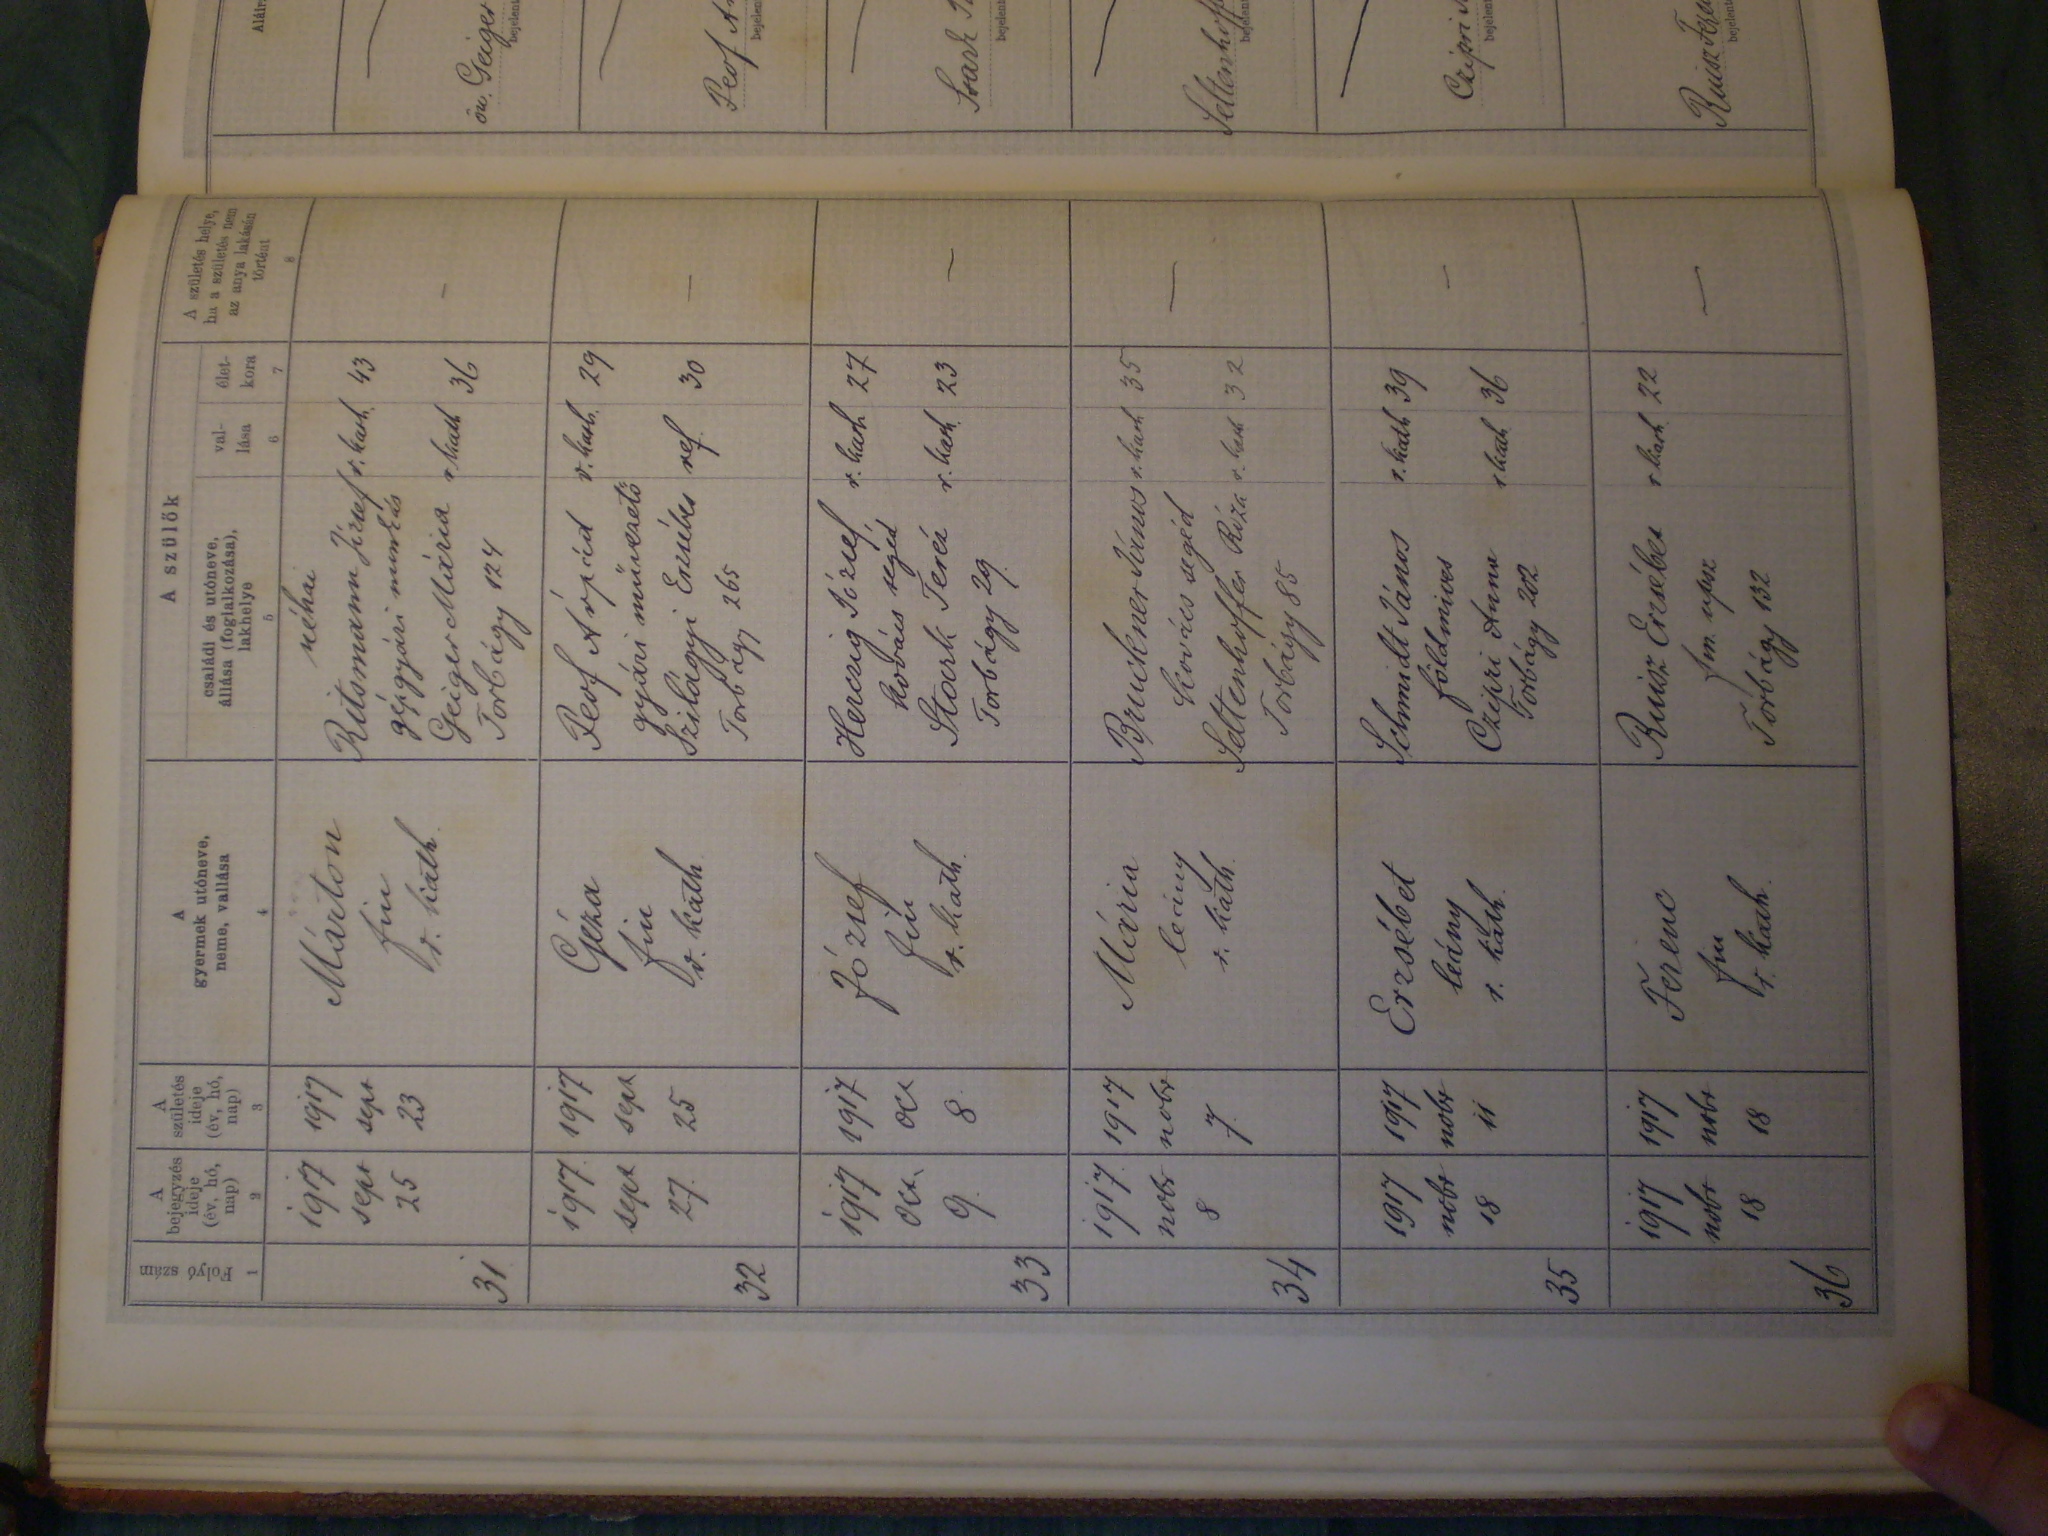 Folyó szám
1
A
bejegyzés
ideje
(év, hó,
nap)
2
A
születés
ideje
(év, hó,
nap)
3
A
gyermek utóneve,
neme, vallása
4
A szülők
családi és utóneve,
állása (foglalkozása),
lakhelye
5
val-
lása
6
élet-
kora
7
A születés helye,
ha a születés nem
az anya lakásán
történt
8
31
1917
sept
25
1917
sept
23
Márton
fiu
r. kath.
néhai
Ritsmann József r. kath. 43
gépgyári munkás
Geiger Mária r. kath 36
Torbágy 124
—
32
1917
sept
27.
1917
sept
25
Géza
fiu
r. kath.
Peof Árpád r. kath. 29
gyári művezető
Szilágyi Erzsébet ref. 30
Torbágy 265
—
33
1917
Oct.
9.
1917
oct
8.
József
fiu
r. kath.
Herczig József r. kath 27
kovács segéd
Stark Teréz r. kath. 23
Torbágy 29.
—
34
1917.
nobr
8
1917
nobr
7.
Mária
leány
r. kath.
Bruckner János r. kath 35
kovács segéd
Seltenhoffer Róza r. kath 32
Torbágy 85
—
35
1917
nobr
18
1917
nobr
11
Erzsébet
leány
r. kath.
Schmidt János r. kath 39
földmives
Czipri Anna r. kath 36
Torbágy 202
—
36
1917
nobr
18
1917
nobr
18
Ferenc
fiu
r. kath.
Ruisz Erzsébet r. kath 22
Torbágy 132
—
öv. Geiger
bejelent
Peof
bejelent
bejelent
Seltenhoff
bejelent
Czipri
bejelent
Ruisz
bejelent